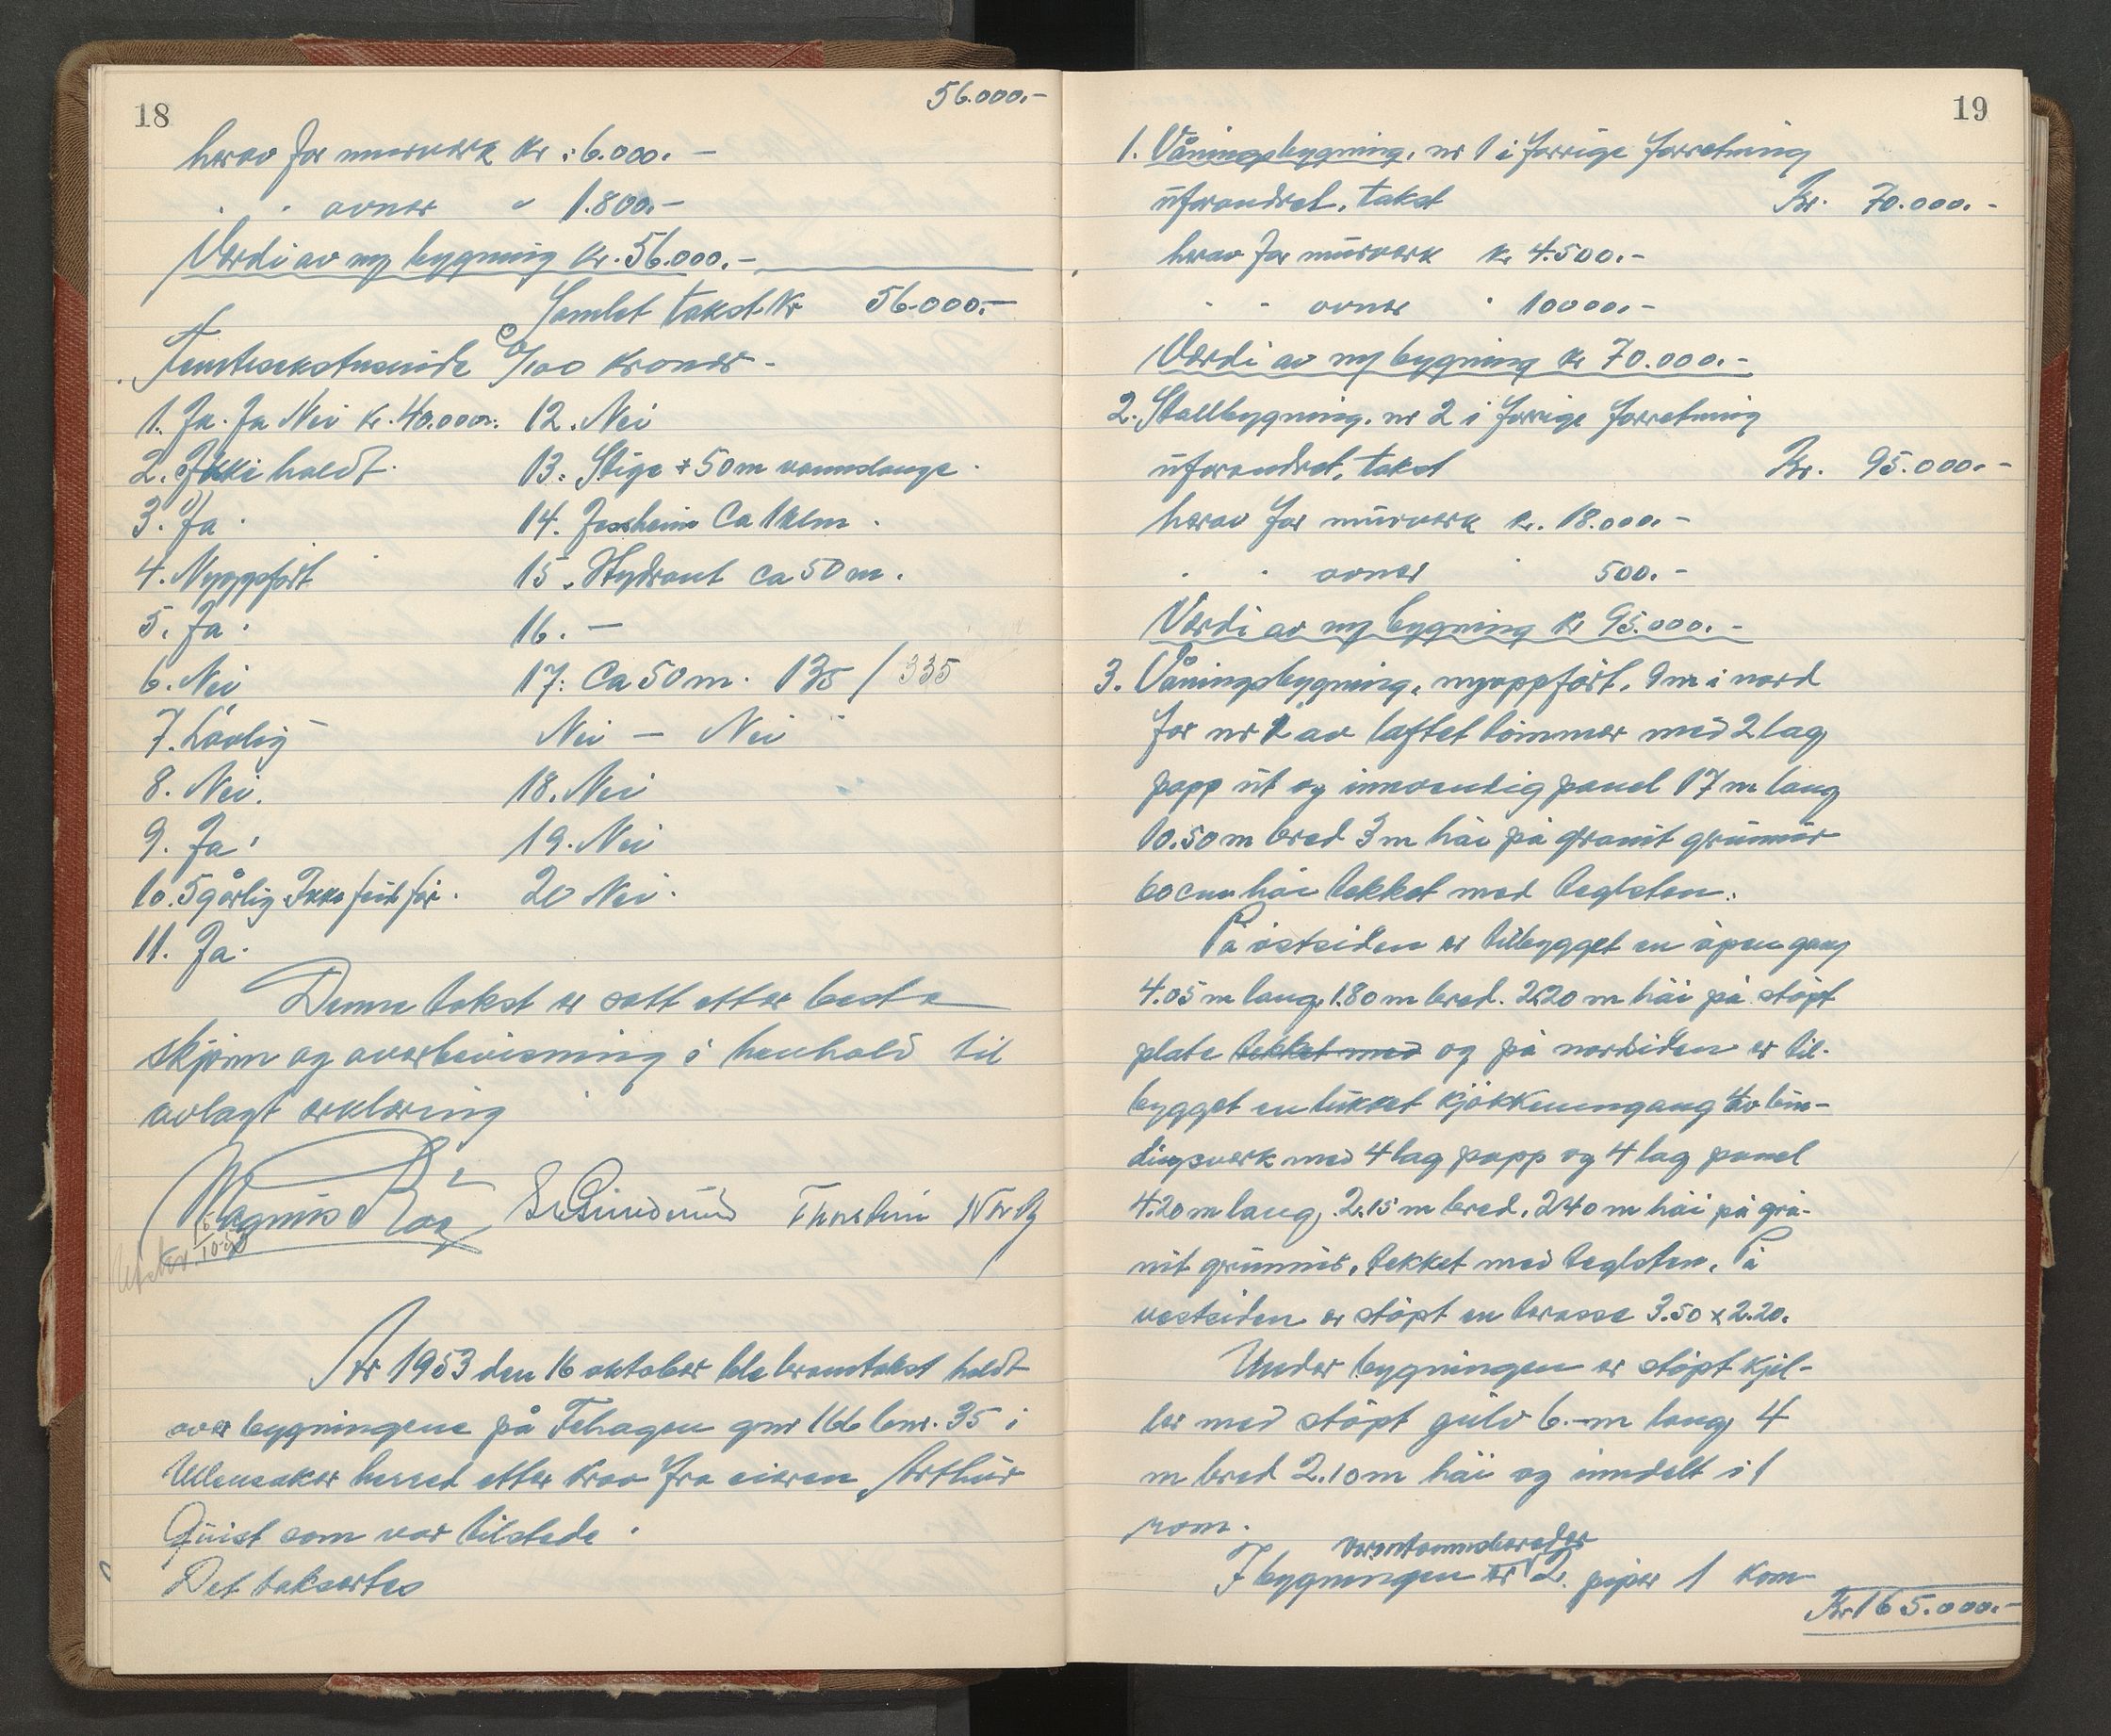 18
56.000.-
herav for murverk kr. 6.000.-
" " ovner " 1.800.-
Verdi av ny bygning kr. 56.000.-
Samlet takst kr 56.000.-
Femtisekstusinde 00/100 kroner.-
1. Ja. Ja Nei kr. 40.000.-
2. Ikke holdt.
3. Ja.
4. Nyoppført
5. Ja.
6. Nei
7. Lovlig
8. Nei.
9. Ja.
10. 5 gårlig Ikke feil før.
11. Ja.
12. Nei
13. Stige + 50 m vannslange.
14. Jessheim Ca 1 klm.
15. Hydrant ca 50 m.
16. -
17. Ca 50 m. 135 / 335
Nei - Nei
18. Nei
19. Nei
20 Nei.
Denne takst er satt etter beste
skjønn og overbevisning i henhold til
avlagt erklæring
Magnus
Thorstein
Utskr. 16/10-53
År 1953 den 16 oktober ble branntakst holdt
over bygningene på Fehagen gnr 166 bnr. 35 i
Ullensaker herred etter krav fra eieren Arthur
Quist som var tilstede.
Det taksertes
19
1. Våningsbygning, nr 1 i forrige forretning
uforandret, takst Kr. 70.000.-
herav for murverk kr 4.500.-
" " ovner " 10000.-
Verdi av ny bygning kr 70.000.-
2. Stallbygning, nr 2 i forrige forretning
uforandret, takst Kr. 95.000.-
herav for murverk kr. 18.000.-
" " ovner 500.-
Verdi av ny bygning kr 95.000.-
3. Våningsbygning, nyoppført, 9 m i nord
for nr 1 av laftet tømmer med 2 lag
papp ut og innvendig panel 17 m lang
10.50 m bred 3 m høi på granit grunmur
60 cm høi tekket med teglsten.
På østsiden er tilbygget en åpen gang
4.05 m lang, 1.80 m bred. 2.20 m høi på støpt
plate tekket med og på nordsiden er til-
bygget en lukket kjøkkeninngang av bin-
dingsverk med 4 lag papp og 4 lag panel
4.20 m lang, 2.15 m bred, 2.40 m høi på gra-
nit grunmur, tekket med teglsten. På
vestsiden er støpt en terasse 3.50 x 2.20.
Under bygningen er støpt kjel-
ler med støpt gulv 6.- m lang 4
m bred 2.10 m høi og inndelt i 1
rom.
varmtvannsbereder
I bygningen er 2 piper 1 kom
Kr 165.000.-